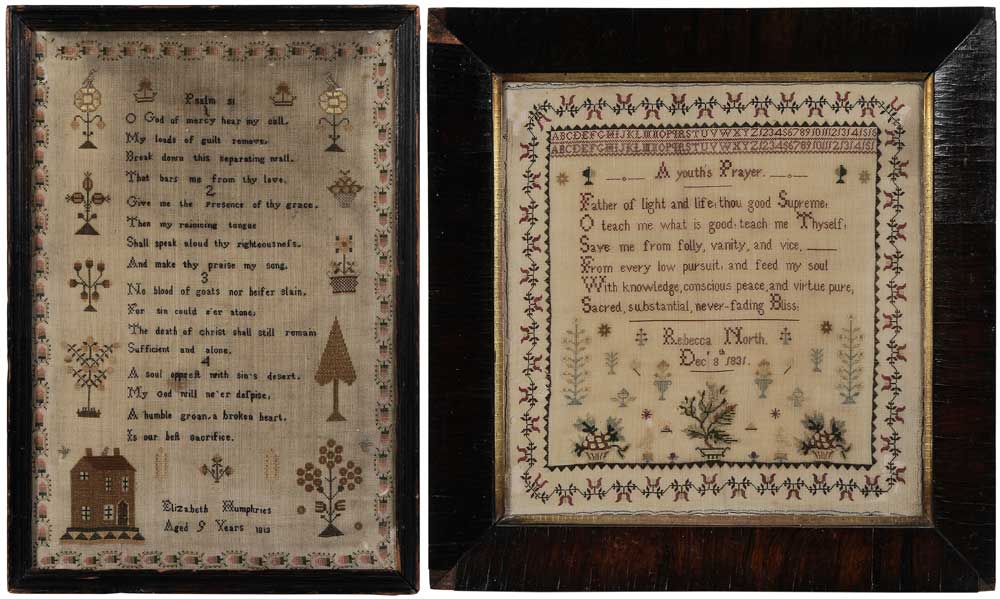 Psalm 51
1
O God of mercy hear my call,
My loads of guilt remove,
Break down this separating wall,
That bars me from thy love.
2
Give me the Presence of thy grace,
Then my rejoicing tongue
Shall speak aloud thy righteousnefs,
And make thy praise my song.
3
No blood of goats nor heifer slain,
For sin could e'er atone,
The death of christ shall still remain
Sufficient and alone.
4
A soul opprest with sin's desert,
My God will ne'er defpise,
A humble groan, a broken heart,
Is our best sacrifice.
Elizabeth Humphries
Aged 9 Years 1813
ABCDEFGHIJKLMNOPQRSTUVWXYZ 1 2 3 4 5 6 7 8 9 10 11 12 13 14 15 16
ABCDEFGHIJKLMNOPQRSTUVWXYZ 1 2 3 4 5 6 7 8 9 10 11 12 13 14 15
A youth's Prayer.
Father of light and life; thou good Supreme,
O teach me what is good; teach me Thyself;
Save me from folly, vanity, and vice,
From every low pursuit; and feed my soul
With knowledge, conscious peace, and virtue pure,
Sacred, substantial, never-fading Bliss;
Rebecca North.
Decr 8th 1831.